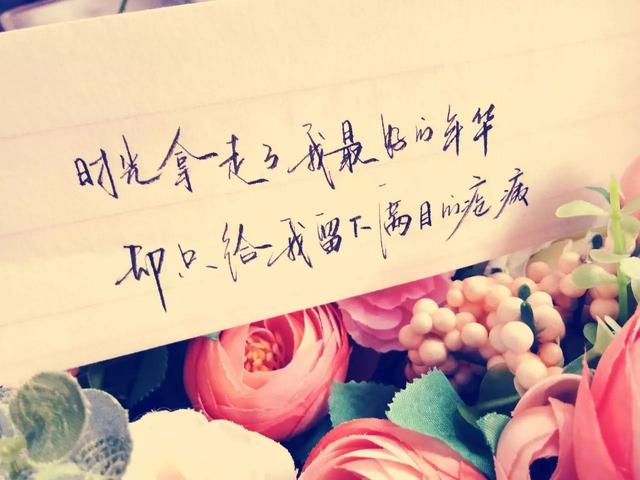 时光拿走了我最好的年华
却只给我留下满目的疮痍